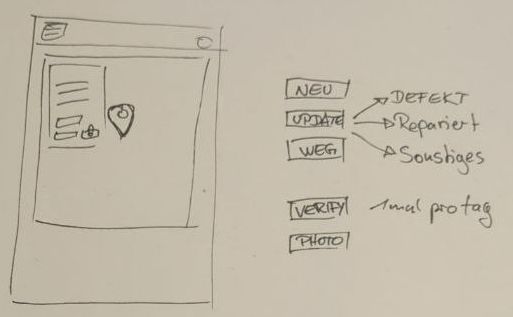 NEU
UPDATE
DEFEKT
Repariert
Sonstiges
WEG
VERIFY 1mal pro tag
PHOTO